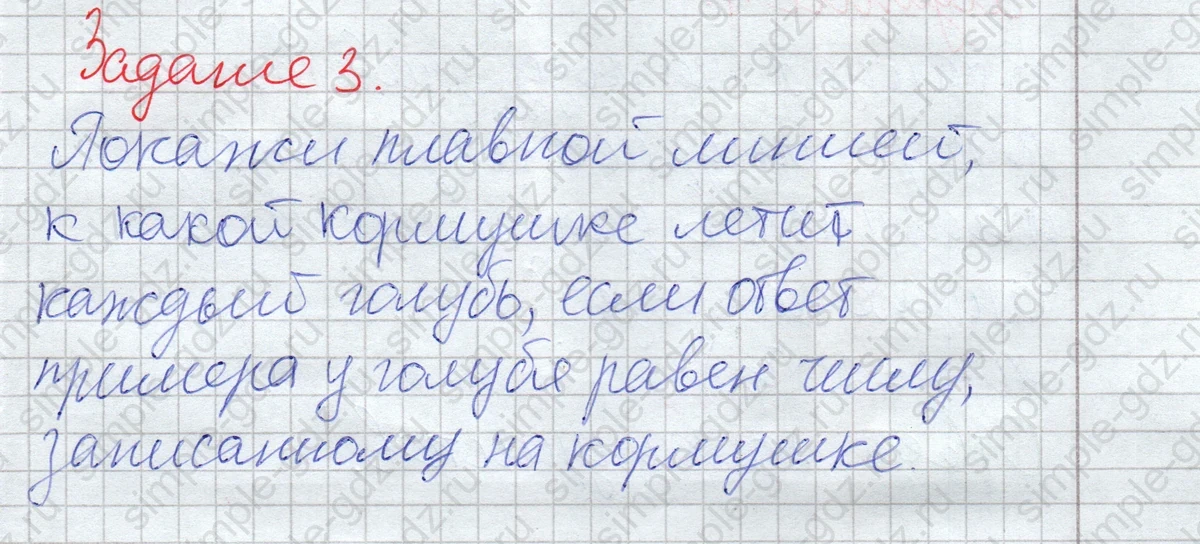 Задание 3.
Покажи плавной линией,
к какой кормушке летит
каждый голубь, если ответ
примера у голубя равен числу,
записанному на кормушке.
simple-gdz.ru